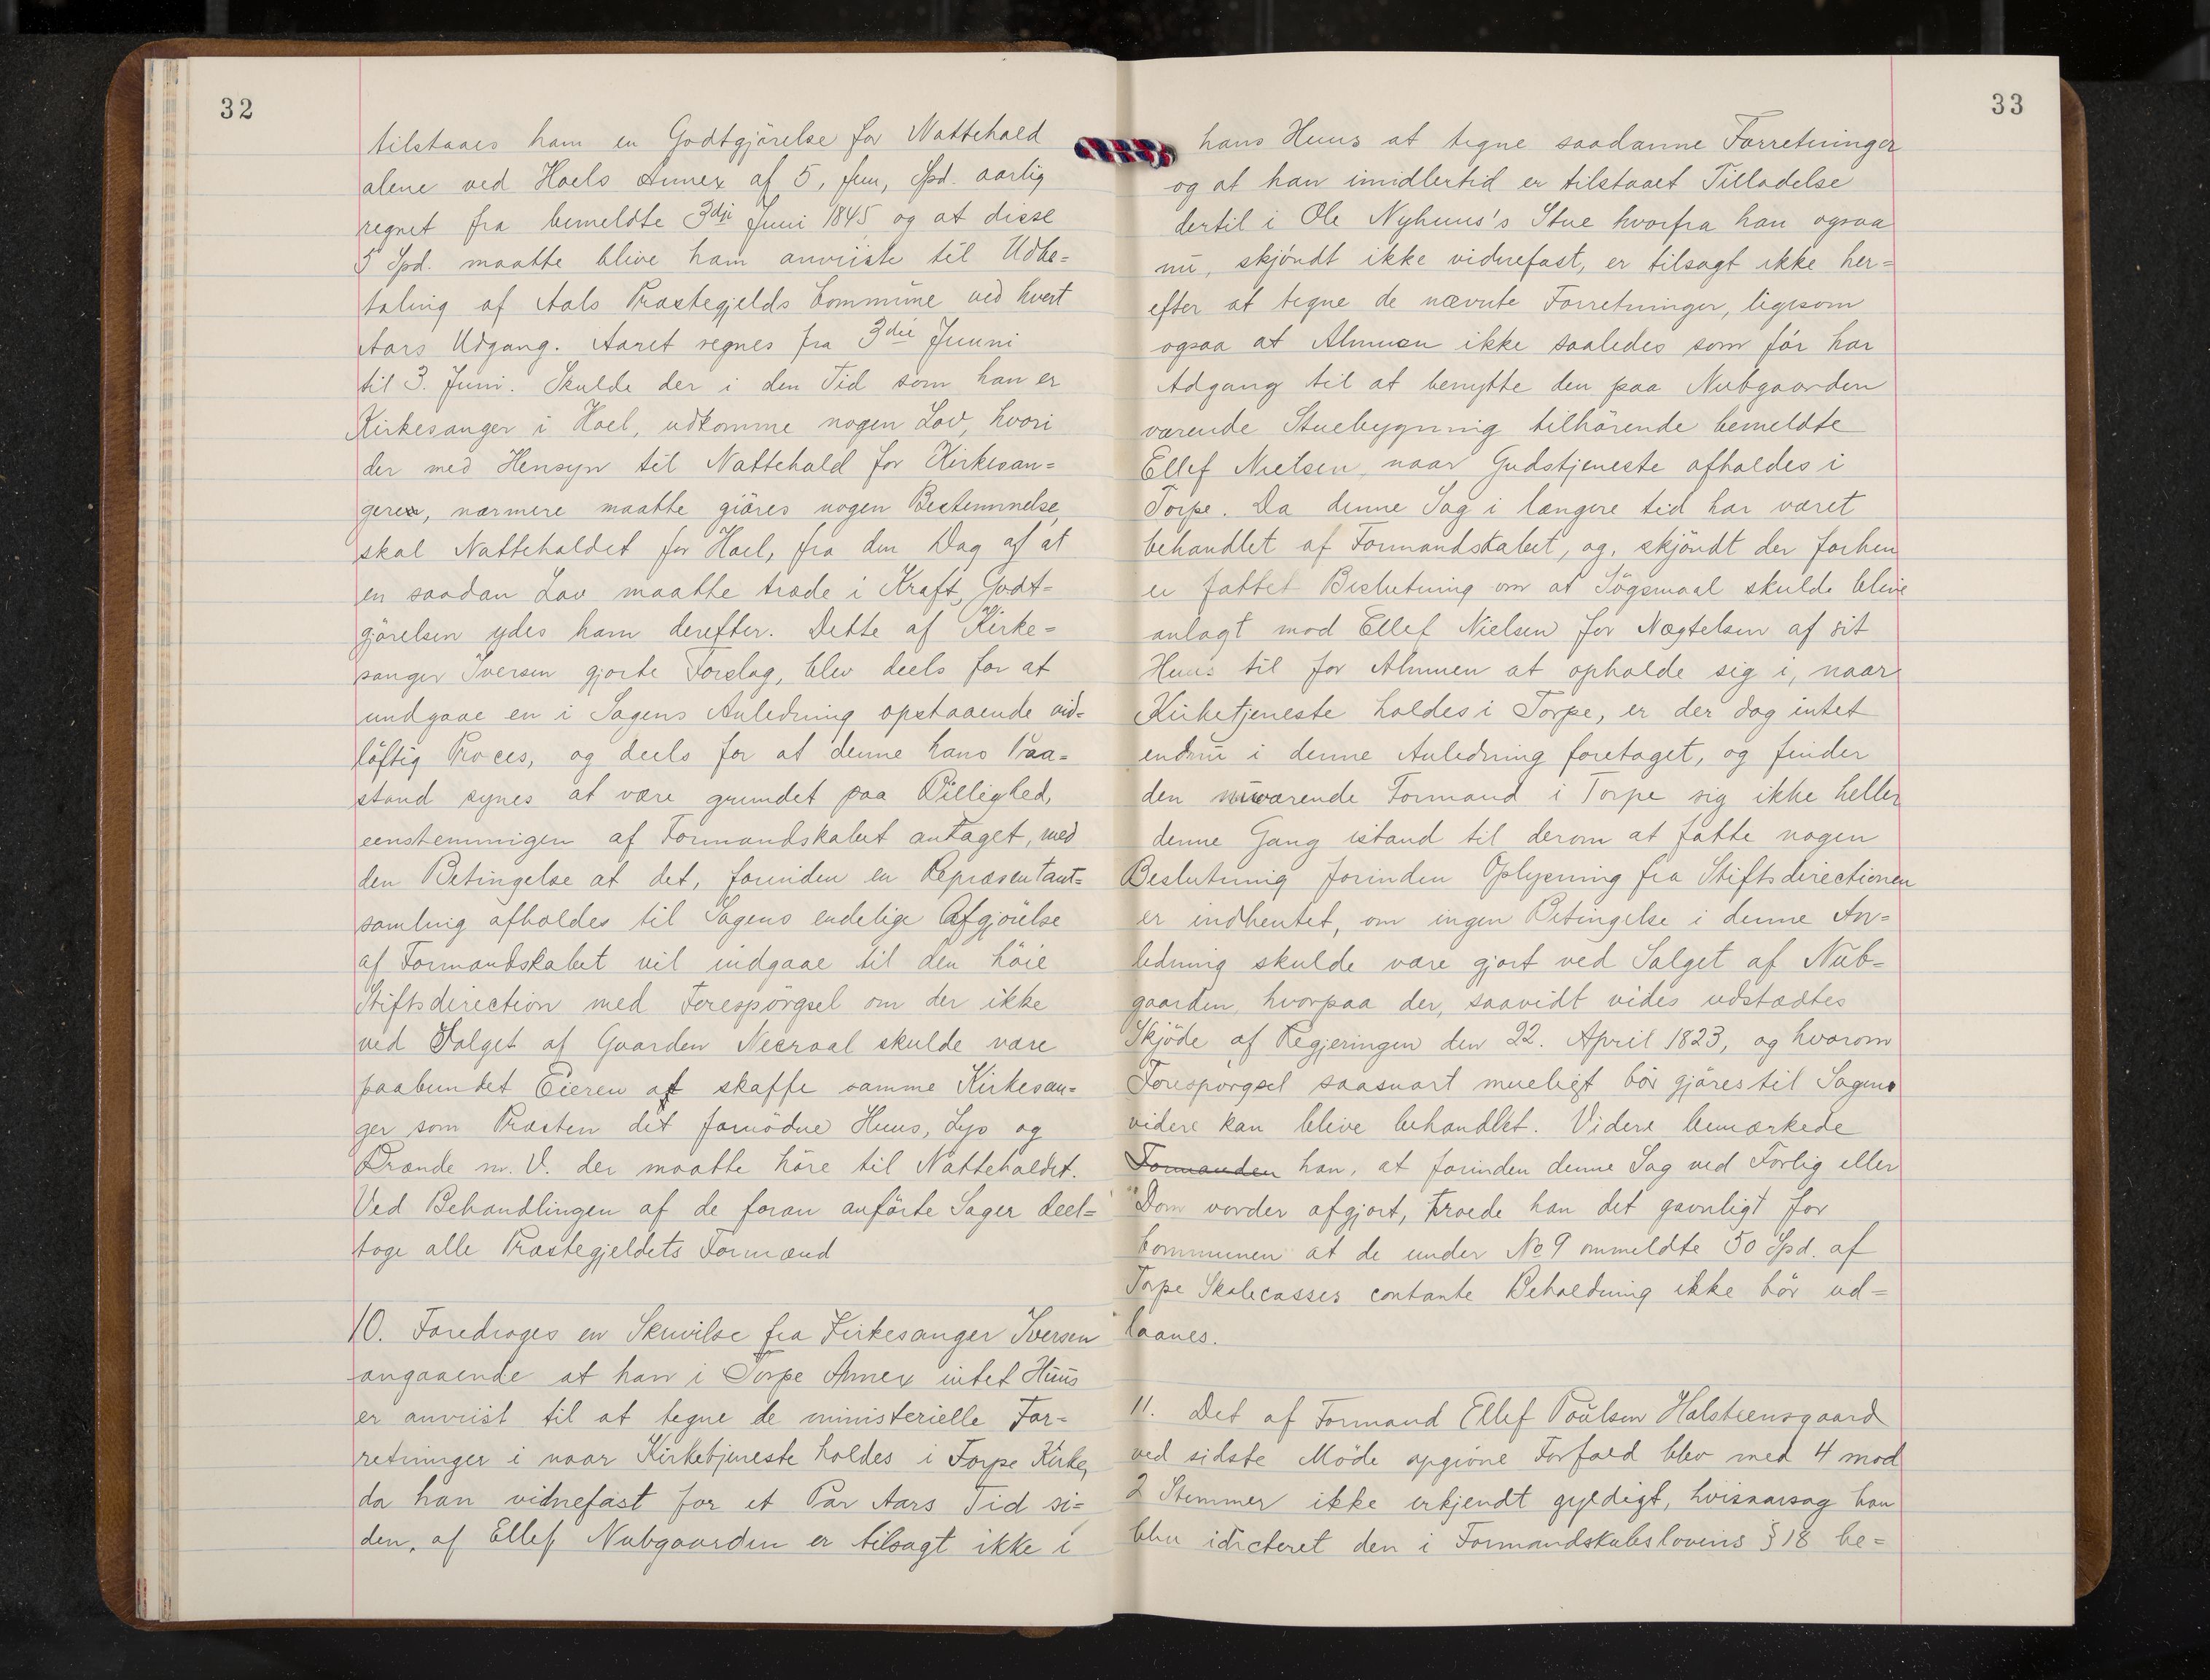 32
tilstaaes ham en Godtgjörelse for Nattehold
alene ved Hoels Annex af 5, fem, Spd. aarlig
regnet fra bemeldte 3die Juni 1845 og at disse
5 Spd. maatte blive ham anviiste til Udbe=
taling af Aals Præstegjelds Commune ved hvert
Aars Udgang. Aaret regnes fra 3die Juuni
til 3. Juni. Skulde der i den Tid som han er
Kirkesanger i Hoel, udkomme nogen Lov, hvori
der med Hensyn til Nattehold for Kirkesan=
gere, nærmere maatte giöres nogen Bestemmelse,
skal Natteholdet for Hoel, fra den Dag af at
en saadan Lov maatte træde i Kraft, Godt=
gjörelsen ydes ham derefter. Dette af Kirke=
sanger Iversen gjorte Forslag, blev deels for at
undgaae en i Sagens Anledning opstaaende vid=
löftig Proces, og deels for at denne hans Paa=
stand synes at være grundet paa Billighed,
eenstemmigen af Formandskabet antaget, med
den Betingelse at det, forinden en Repræsentant=
samling afholdes til Sagens endelige Afgjörelse
af Formandskabet vil indgaae til den höie
Stiftsdirection med Forespörgsel om der ikke
ved Salget af Gaarden Nesraal skulde være
paabundet Eieren at skaffe samme Kirkesan=
ger som Præsten dit fornödne Huus, Lys og
Brænde m. V. der maatte höre til Natteholdet.
Ved Behandlingen af de foran anförte Sager deel=
toge alle Præstegjeldets Formænd
10. Foredroges en Skrivelse fra Kirkesanger Iversen
angaaende at han i Torpe Annex intet Huus
er anviist til at tegne de ministerielle For=
retninger i naar Kirketjeneste holdes i Torpe Kirke,
da han vidnefast for et Par Aars Tid si=
den, af Ellef Nubgaarden er tilsagt ikke i
33
hans Huus at tegne saadanne Forretninger
og at han imidlertid er tilstaaet Tilladelse
dertil i Ole Nyhuus's Stue hvorfra han ogsaa
nu, skjöndt ikke vidnefast, er tilsagt ikke her=
efter at tegne de nævnte Forretninger, ligesom
ogsaa at Almuen ikke saaledes som för har
Adgang til at benytte den paa Nubgaarden
værende Stuebygning tilhörende bemeldte
Ellef Nielsen, naar Gudstjeneste afholdes i
Torpe. Da denne Sag i længere tid har været
behandlet af Formandskabet, og, skjöndt der forhen
er fattet Beslutning om at Sögsmaal skulde blive
anlagt mod Ellef Nielsen for Nægtelsen af sit
Huus til for Almuen at opholde sig i, naar
Kirketjeneste holdes i Torpe, er der dog intet
endnu i denne Anledning foretaget, og finder
den nuværende Formand i Torpe sig ikke heller
denne Gang istand til derom at fatte nogen
Beslutning forinden Oplysning fra Stiftsdirectionen
er indhentet, om ingen Betingelse i denne An=
ledning skulde være gjort ved Salget af Nub=
gaarden, hvorpaa der, saavidt vides udstædtes
Skjöde af Regjeringen den 22. April 1823, og hvorom
Forespörgsel saasnart mueligt bör gjöres til Sagens
videre kan blive behandlet. Videre bemærkede
Formanden han, at forinden denne Sag ved Forlig eller
Dom vorder afgjort, troede han det gavnligt for
Communen at de under No 9 ommeldte 50 Spd. af
Torpe Skolecasses contante Beholdning ikke bör ud=
laanes.
11. Det af Formand Ellef Poulsen Holsteensgaard
ved sidste Möde opgivne Forfald blev med 4 mod
2 Stemmer ikke erkjendt gyldigt, hvisaarsag han
blev idicteret den i Formandskabslovens § 18 be=